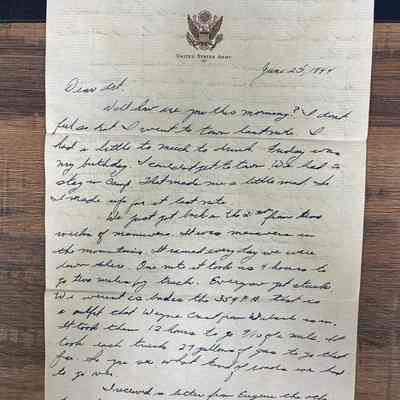 United States Army
June 25, 1944
Dear
Well how are you this morning? I don't
feel so hot I went to town last nite. I
had a little to much to drink Friday was
my birthday I couldn't get to town We had to
stay in Camp. That made me a little mad. So
I made up for it last nite.
We just got back on the 22nd from
weeks of manuvers. It was manuvers in
the mountains. It rained every day we were
down there. One nite it took us 9 hours to
go two miles by truck. Every one got stuck
We went in besides the 359 F.A. that is
a outfit that Wayne from is in.
It took them 12 hours to go of a mile. It
took each truck 27 gallons of gas to go that
far. So you see what kind of roads we had
to go over.
I received a letter from Eugene the other